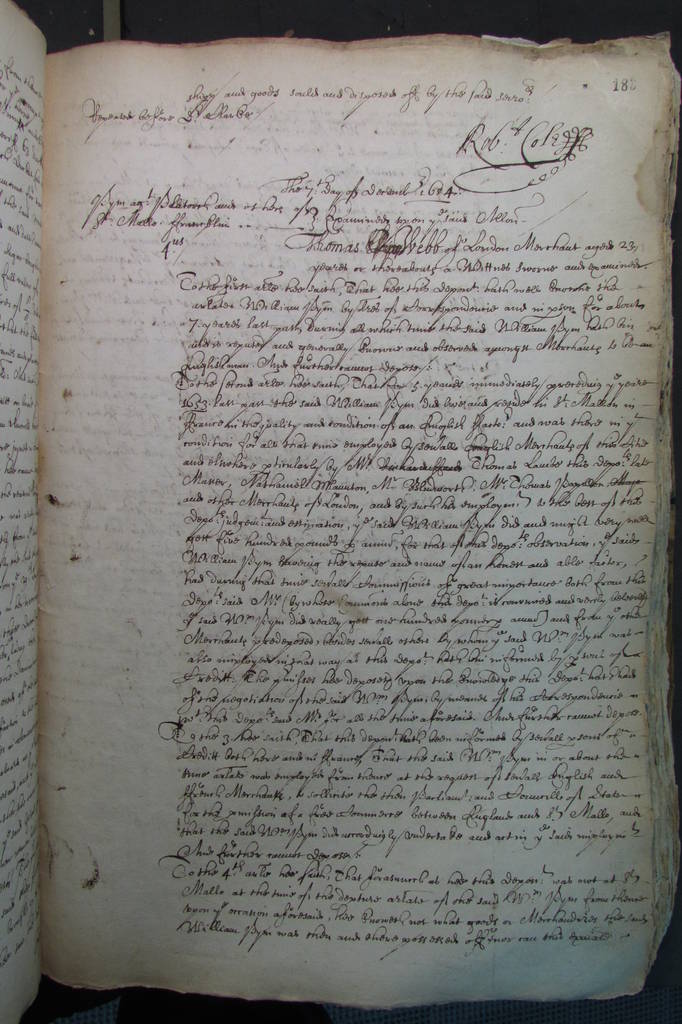 182
shipp and goods sould and disposed off by the said
Repeated before Dr Clarke
Robt: Coke
The 7th day of Decemb: 1654.
Pym agt and others of
St. Mallo. Francklin
Examined upon ye said Allon
4us
Thomas Webb of London Merchant aged 23
yeares or thereabouts a Wittnes sworne and examined.
To the first arle hee saith, That hee this depont hath well knowne the
arlate William Pym by of Correspondencie and in pson for about
7 yeares last past, during all which time the said William Pym hath bin
and generally knowne and observed amongst Merchants to be an
Englishman. And further cannot depose:
To the second arle hee saith, That for 5 yeares immediately preceding ye yeare
1653 last past the said William Pym did live and reside in St. Mallo in
France in the quality and condition of an English Factor and was there in ye
condition for all that time employed by severall English Merchants of this Citie
and elsewhere pticularly by Mr. Thomas Lambe this depots late
Master, Nathaniell Maunton, Mr Bludworth, Mr. Thomas
and other Merchants of London, and by such his employmt to the best of this
depots judgemt and estimation, ye said William Pym did and might very well
gett five hundred pounds p annu, for that of this depots observation, ye said
William Pym having the repute and name of an honest and able factor,
had during that time severall Commissions of great importance both from this
depots said Mr. (by whose Commons alone this depot is convinced and verily beleeveth
ye said Wm Pym did really gett one hundred pounds p annu) and from ye other
Merchants predeposed, besides severall others by whom ye said Wm Pym was
also imployed in that way as this depot hath bin informed by psons of
Creditt. The pmisses hee deposeth upon the knowledge this depot hath had
of the negotiation of the said Wm Pym by meanes of his Correspondencie
wth this depots said Mr. for all the time aforesaid. And further cannot depose.
To the 3. hee saith, That this depont hath been informed by severall psons of
Creditt both here and in France, That the said Wm Pym in or about the
time arlate was employed from thence at the request of severall English and
French Merchants, to sollicite the then Parliamt and Councill of State
for the pmission of a free Commerce betweene England and St Mallo, and
that the said Wm Pym did accordingly undertake and act in ye said imploymt
And further cannot depose:
To the 4th arle hee saith, That forasmuch as hee this Depont was not at St
Mallo at the time of the depture arlate of the said Wm Pym from thence
upon ye occasion aforesaid, hee knoweth not what goods or Merchandizes the said
William Pym was then and there possessed of, nor can this